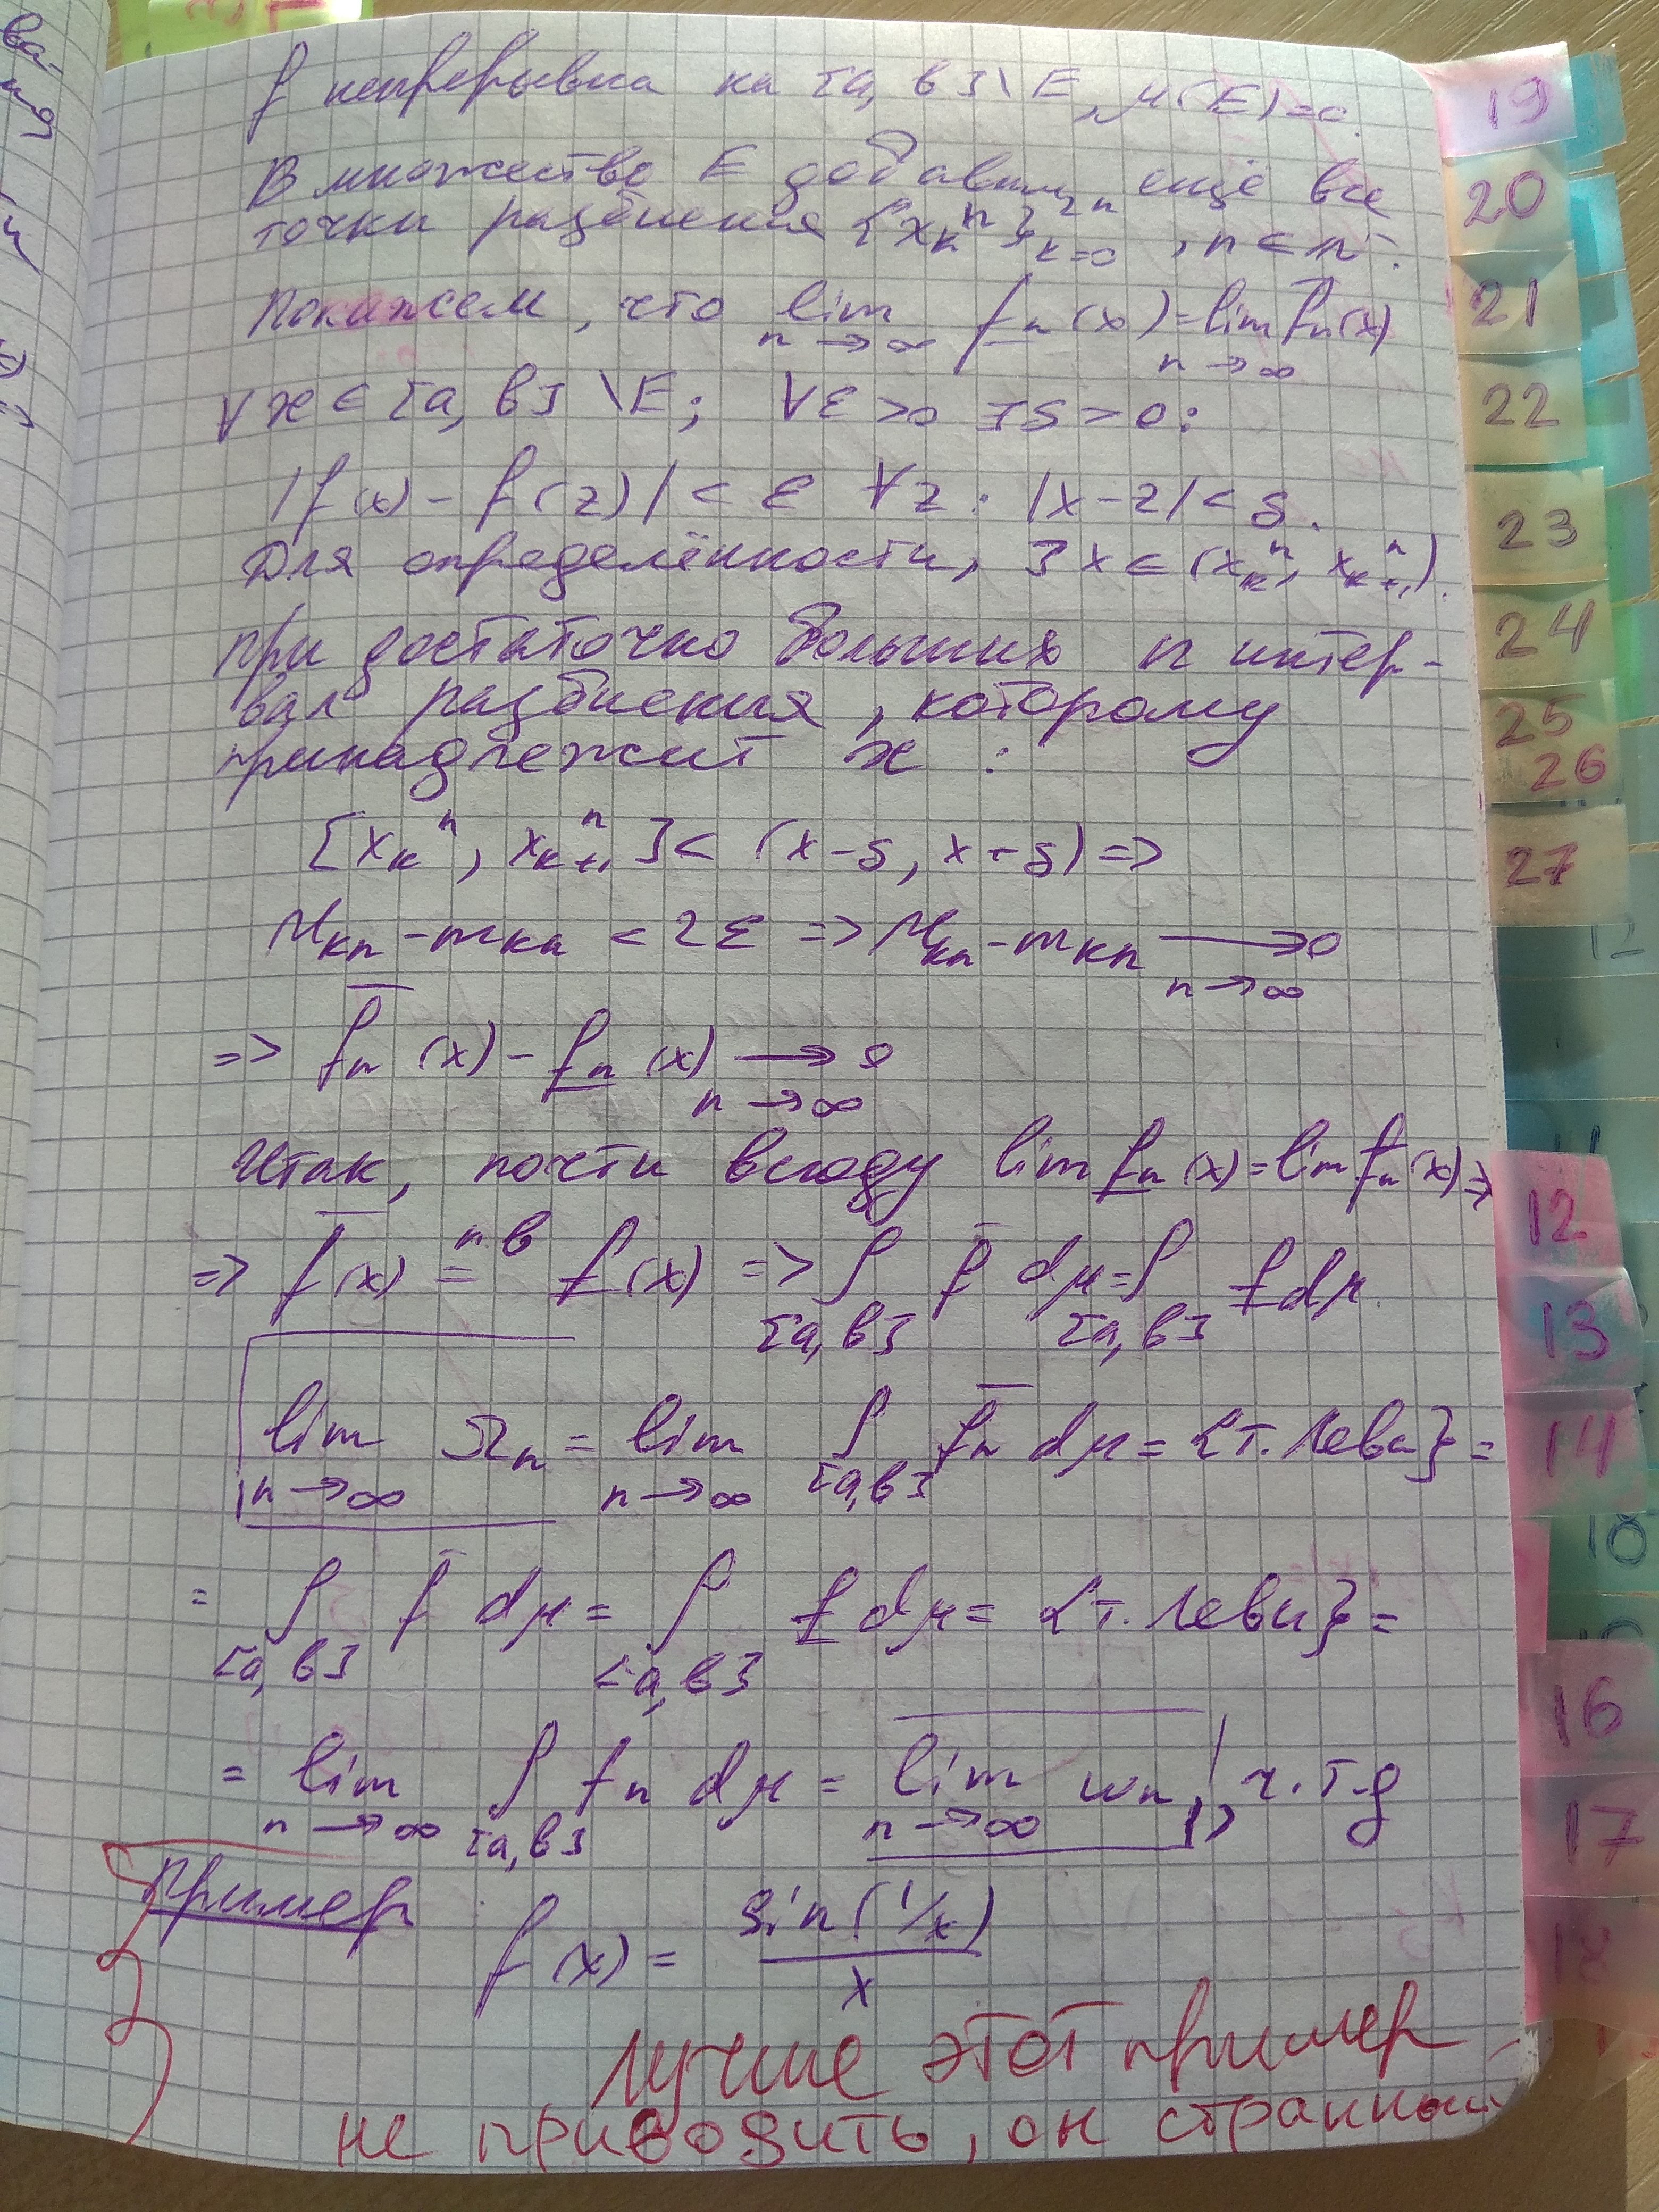 f непрерывна на [a, b]\E, μ(E)=0.
В множество E добавим ещё все
точки разбиения {xₖⁿ}ₖ₌₀²ⁿ, n ∈ N.
Покажем, что lim f̲ₙ(x) = lim f̅ₙ(x)
n→∞ n→∞
∀x ∈ [a, b]\E; ∀ε>0 ∃δ>0:
|f(x) - f(z)| < ε ∀z: |x-z| < δ.
Для определённости, ∃ x ∈ (xₖⁿ, xₖ₊₁ⁿ).
При достаточно больших n интер-
вал разбиения, которому
принадлежит x :
[xₖⁿ, xₖ₊₁ⁿ] ⊂ (x-δ, x+δ) =>
Mₖₙ - mₖₙ < 2ε => Mₖₙ - mₖₙ → 0
n→∞
=> f̅ₙ(x) - f̲ₙ(x) → 0
n→∞
Итак, почти всюду lim f̲ₙ(x) = lim f̅ₙ(x) =>
=> f̅(x) =ᵖᵛ f̲(x) => ∫ f̅ dμ = ∫ f̲ dμ
[a, b] [a, b]
lim Ωₙ = lim ∫ f̅ₙ dμ = {т. Леви} =
n→∞ n→∞ [a, b]
= ∫ f̅ dμ = ∫ f̲ dμ = {т. Леви} =
[a, b] [a, b]
= lim ∫ fₙ dμ = lim ωₙ, ч.т.д
n→∞ [a, b] n→∞
Пример f(x) = sin(1/x)
x
лучше этот пример
не приводить, он странный
19
20
21
22
23
24
25
26
27
12
12
13
14
18
16
17
18